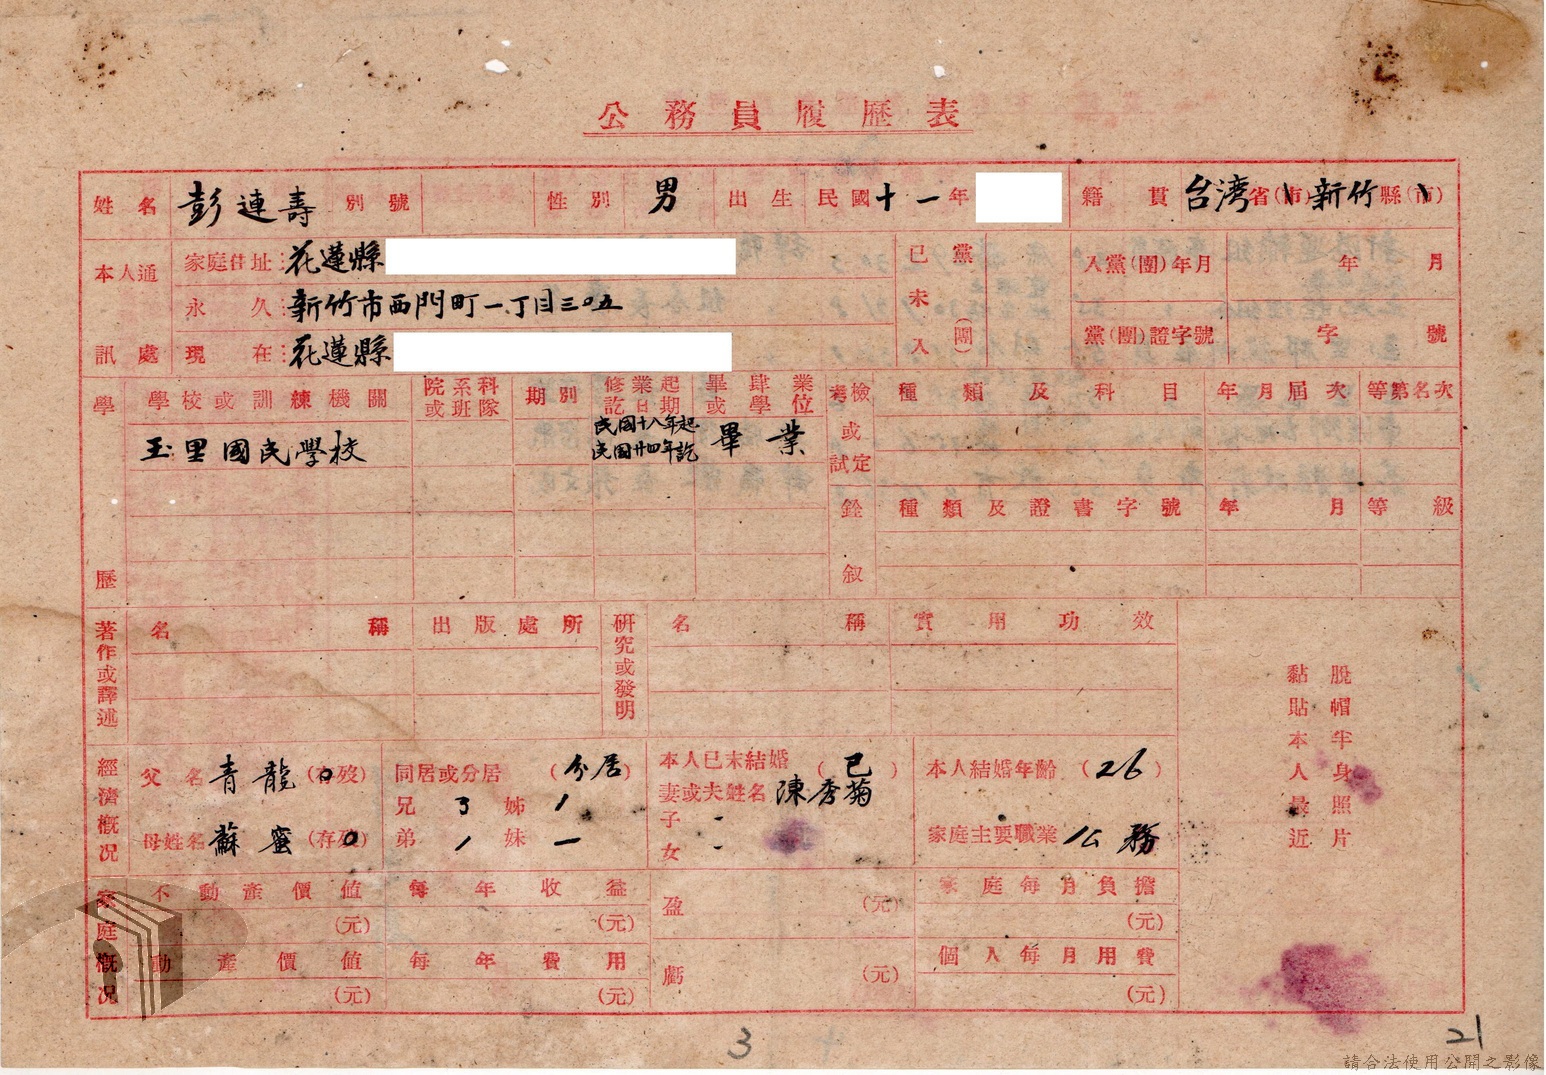 公務員履歷表
姓名 彭連壽 別號 性別 男 出生 民國十一年 籍貫 台湾省(市)新竹縣(市)
本人通訊處
家庭住址:花蓮縣
永久:新竹市西門町一丁目三〇五
現在:花蓮縣
已未入黨(團)
入黨(團)年月 年 月
黨(團)證字號 字 號
學歷
學校或訓練機關 院系科或班隊 期別 修業起訖日期 畢肄業或學位
玉里國民學校 民國十八年起 民國廿四年訖 畢業
考試或檢定 種類及科目 年月屆次 等第名次
銓敘 種類及證書字號 年月 等級
著作或譯述 名稱 出版處所
研究或發明 名稱 實用功效
脫帽半身照片
黏貼本人最近
經濟概況
父名 青龍(存歿) 同居或分居(分居) 本人已未結婚(已) 本人結婚年齡(26)
妻或夫姓名 陳秀菊
兄 3 姊 1 子 -
母姓名 蘇蜜(存歿) 弟 1 妹 一 女 - 家庭主要職業 公務
家庭概況
不動產價值 每年收益 盈 (元) 家庭每月負擔
(元) (元) (元)
動產價值 每年費用 虧 (元) 個人每月用費
(元) (元) (元)
3
21
請合法使用公開之影像